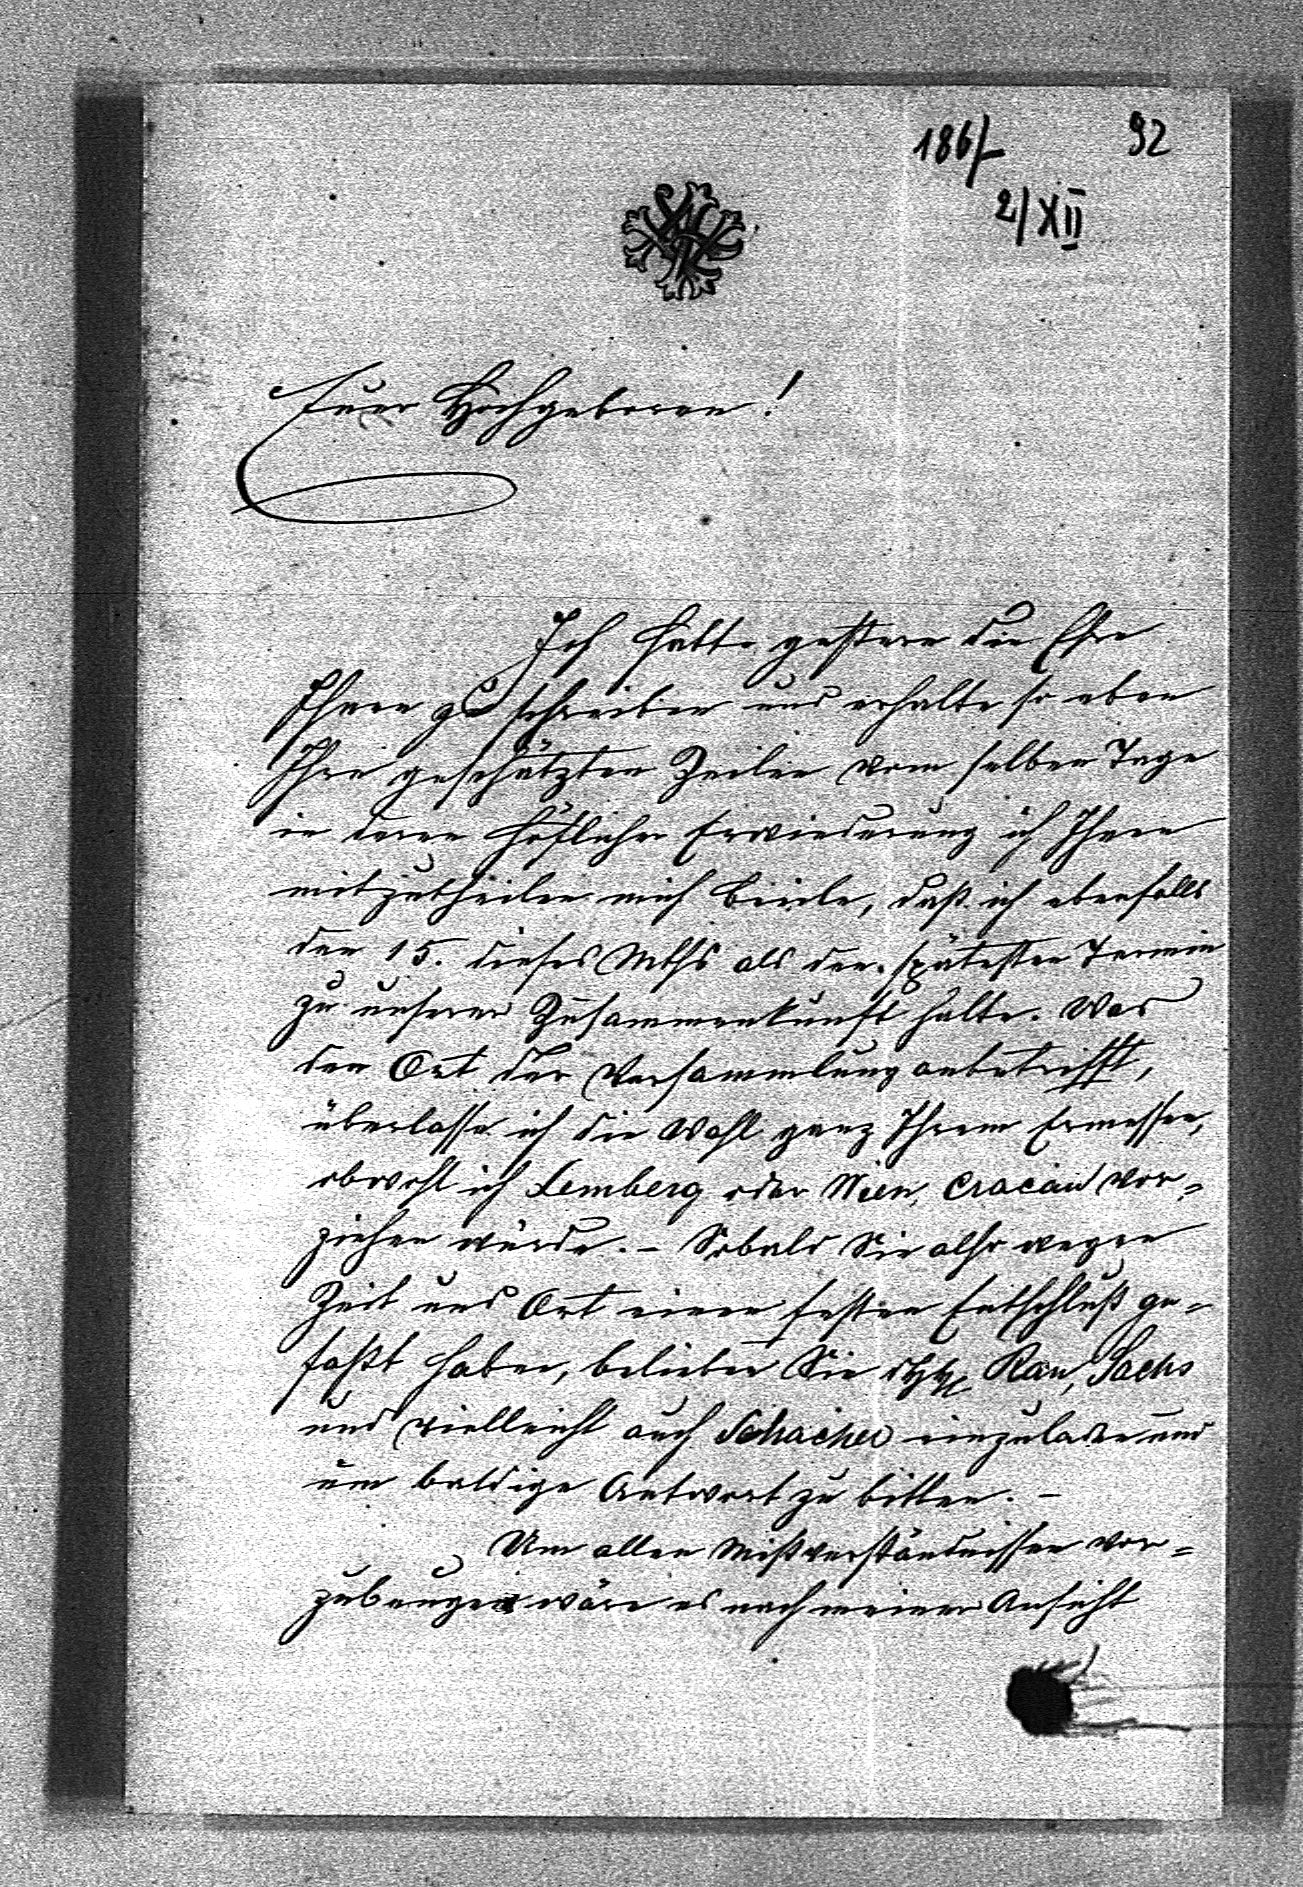 186/ 92
2/XII
Euer Hochgeboren!
Ich hatte gestern die Ehre
Ihnen zu schreiben und erhalte so eben
Ihre geschätzten Zeilen vom selben Tage
in deren höflicher Erwiederung ich Ihnen
mitzutheilen mich beeile, daß ich ebenfalls
den 15. dieses Mths als den spätesten Termin
zu unserer Zusammenkunft halte. Was
den Ort der Versammlung anbetrifft,
überlasse ich die Wahl ganz Ihrem Ermessen,
obwohl ich Lemberg oder Wien, Cracau vor=
ziehen würde. – Sobald Sie also wegen
Zeit und Ort einen festen Entschluß ge=
faßt haben, belieben Sie Rau, Sachs
und vielleicht auch einzuladen und
um baldige Antwort zu bitten. –
Um allen Mißverständnissen vor=
zubeugen wäre es nach meiner Ansicht